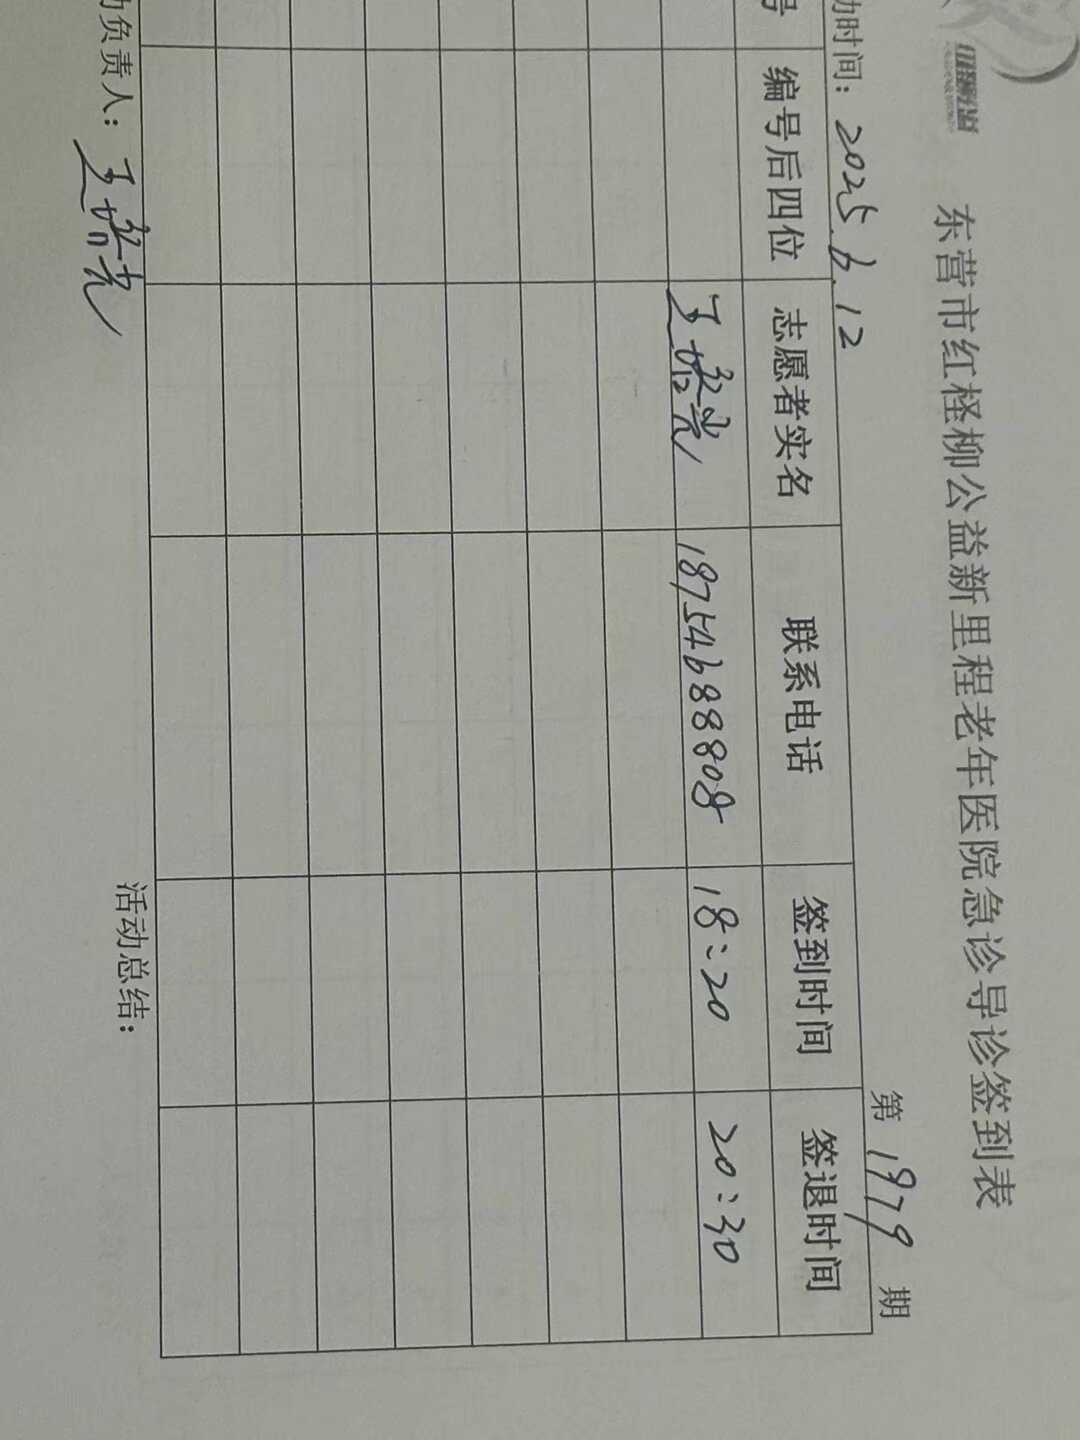 东营市红柽柳公益新里程老年医院急诊导诊签到表
第1979期
动时间：2025.6.12
号 编号后四位 志愿者实名 联系电话 签到时间 签退时间
王培光 18754688808 18:20 20:30
动负责人：王培光 活动总结：